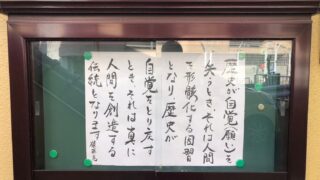 歴史が自覚(願い)を
失うとき、それは人間
を形骸化する因習
となり 歴史が
自覚をとり戻す
とき、それは真に
人間を創造する
伝統となります